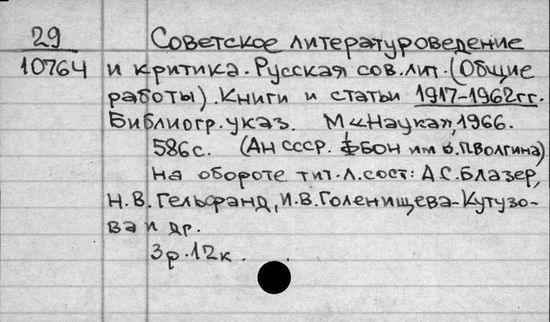 29 Советское литературоведение
10764 и критика. Русская сов. лит. (Общие
работы). Книги и статьи 1917-1962гг.
Библиогр. указ. М «Наука», 1966.
586с. (АН СССР. ФБОН им В.П.Волгина)
на обороте тит. л. сост: А С. Блазер,
Н. В. Гельфанд, И. В. Голенищева-Кутузо-
ва и др.
3р. 12к.